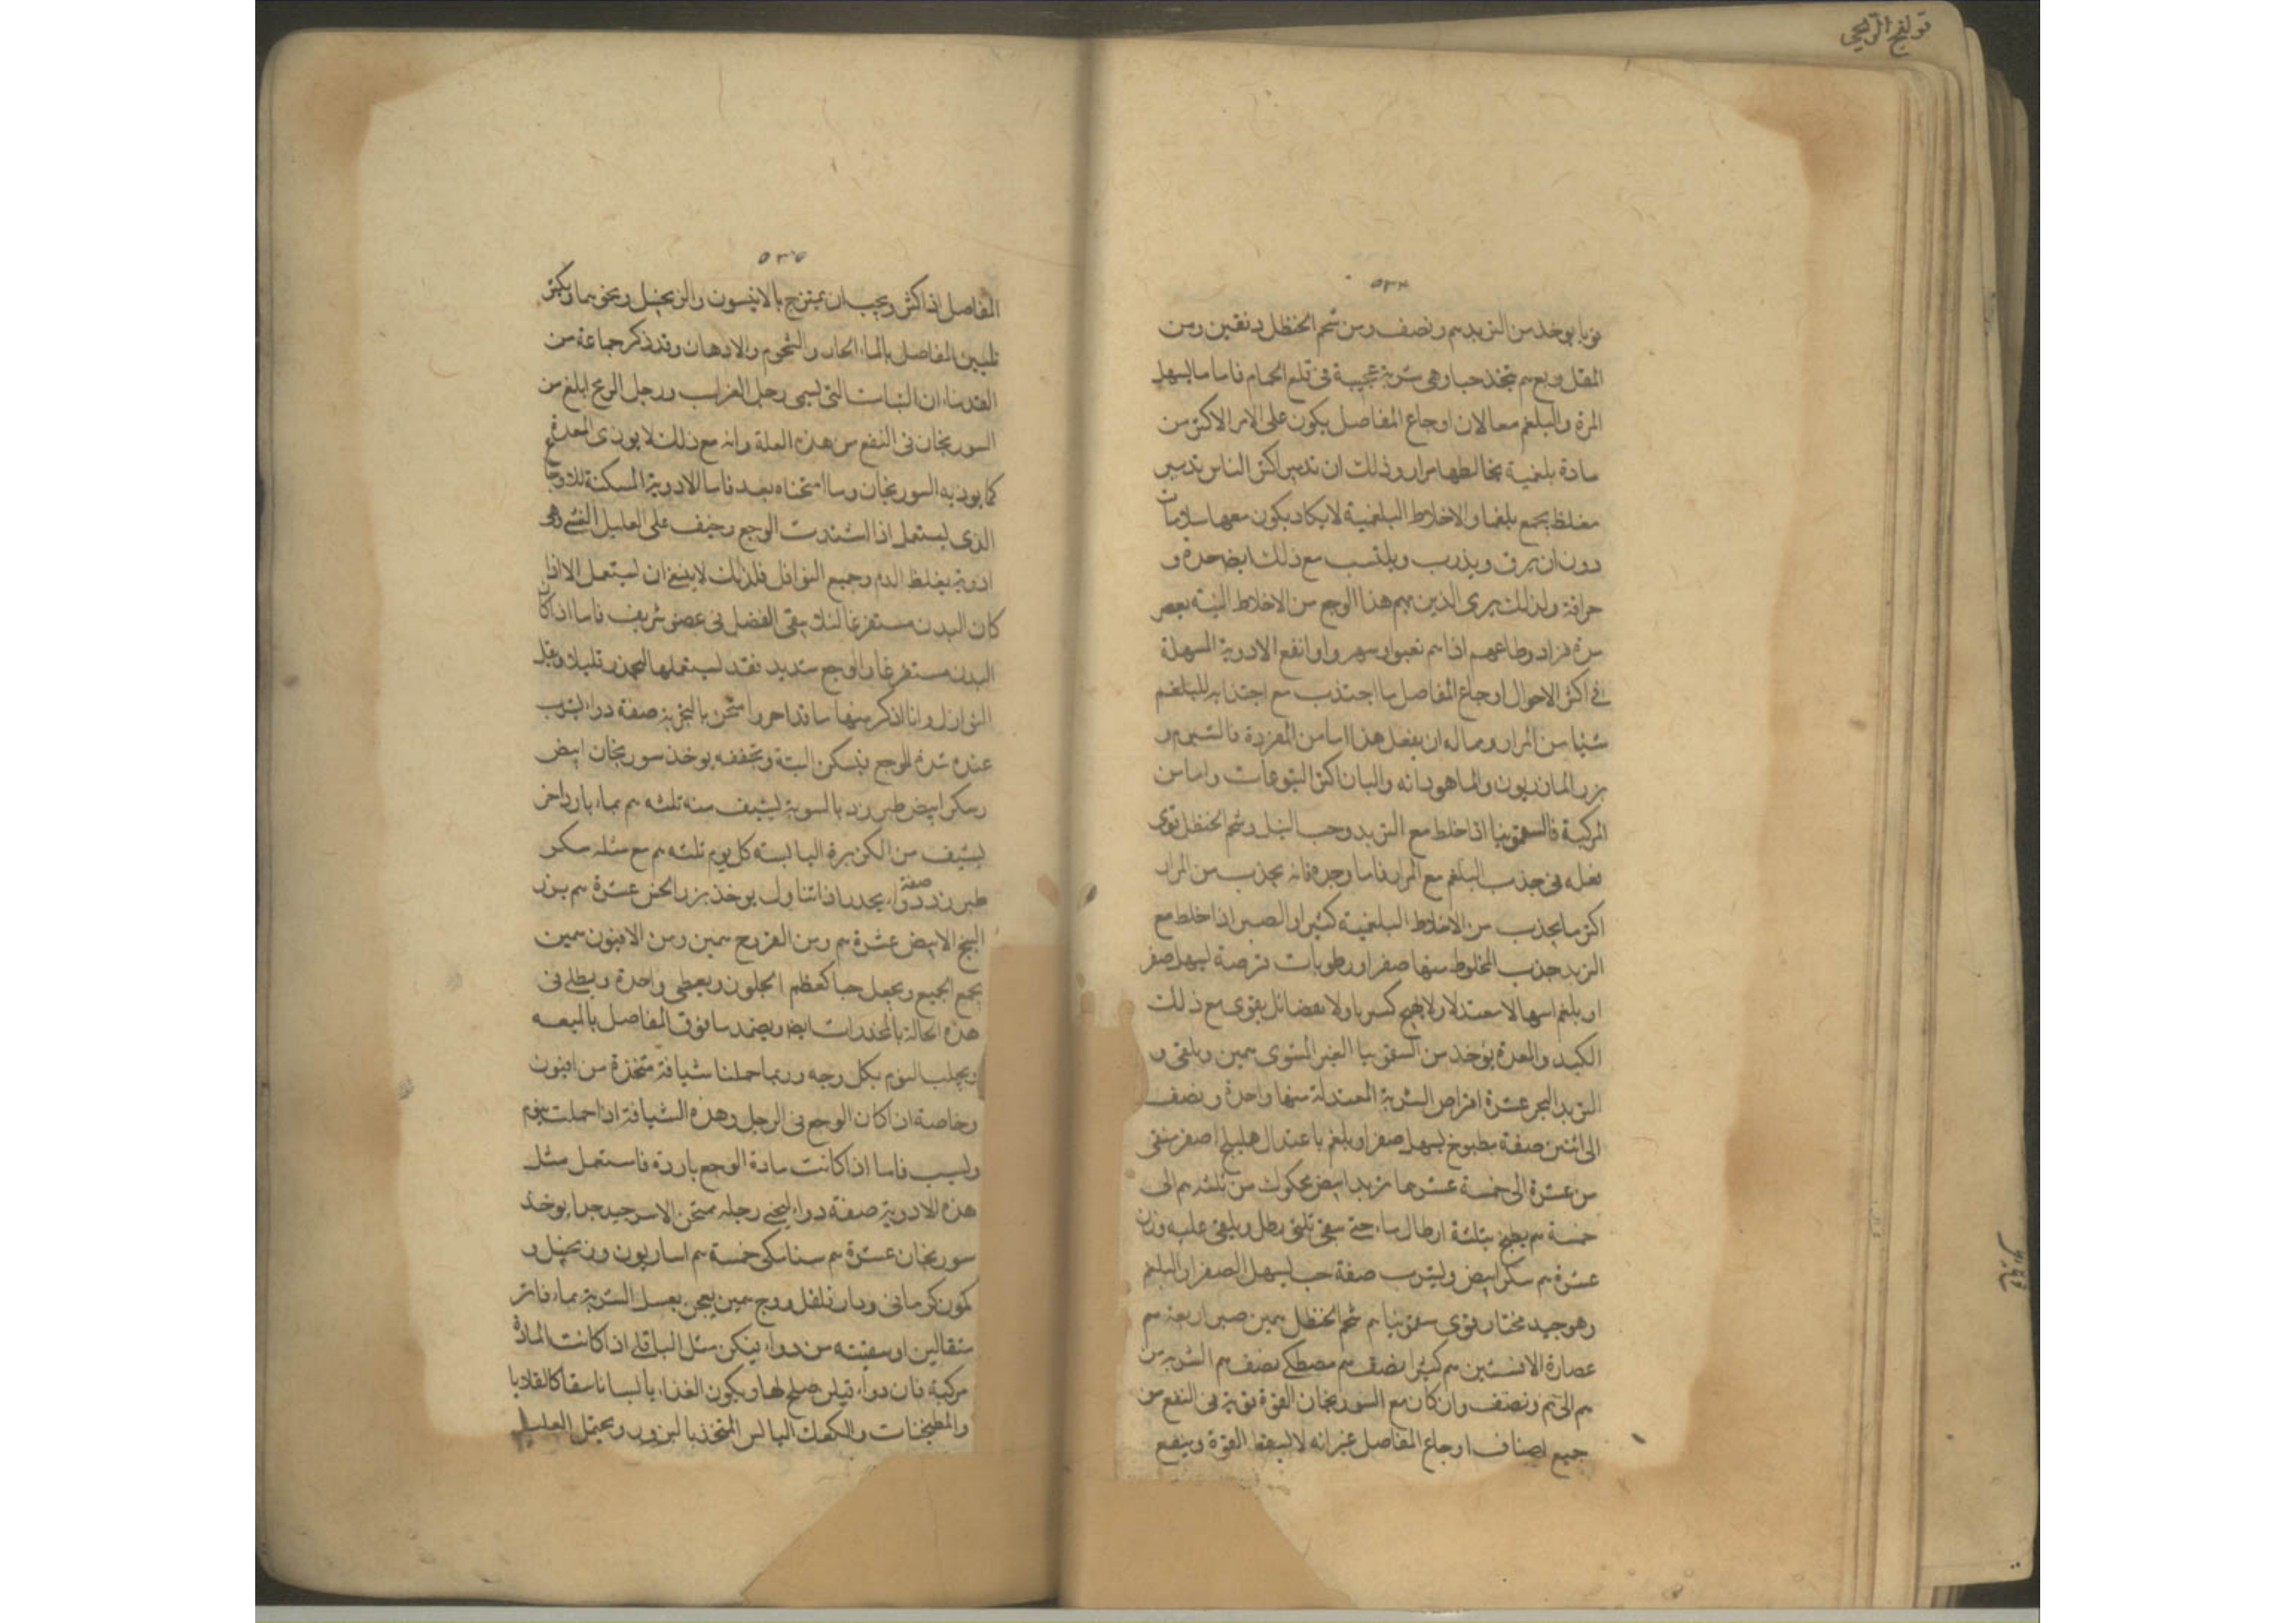 قولنج الريحي
٥٣٤
يوخذ من التربد م ونصف ومن شحم الحنظل دنقين ومن
المقل ربع م يتخذ حبا وهى شربة عجيبة فى قلع الحمام فاما ما يسهل
المرة والبلغم معا لان اوجاع المفاصل يكون على الامر الاكثر من
مادة بلغمية يخالطها مرار وذلك ان تدبير اكثر الناس تدبير
مغلظ يجمع بلغما والاخلاط البلغمية لا يكاد يكون معها سلامات
دون ان يرق ويذرب ويكتسب مع ذلك ايض حدة و
حرافة ولذلك يرى الذين بهم هذا الوجع من الاخلاط النية بعصر
مرة فزاد وطاعهم اذا هم تعبوا وسهروا وانفع الادوية المسهلة
فى اكثر الاحوال اوجاع المفاصل ما اجتذب مع اجتذابه للبلغم
شيا من المرار وماله ان يفعل هذا اما من المفردة فالشبرم و
بزر المازريون والماهودانه والبان اكثر اليتوعات واما من
المركبة فالسقمونيا اذا خلط مع التربد وحب النيل وشحم الحنظل قوى
فعله فى جذب البلغم مع المرار فاما وحده فانه يجذب من المرار
اكثر ما يجذب من الاخلاط البلغمية كثيرا والصبر اذا خلط مع
التربد جذب المخلوط منها صفرا ورطوبات قرصة ليسهل صفر
او بلغم اسهالا معتدلا ولا يهيج كسربا ولا بعضائل يقوى مع ذلك
الكبد والمعدة يوخذ من السقمونيا الغير المشوى همين ويلقى و
التربد البحر عشرة اقراص الشربة المعتدلة منها واحدة ونصف
الى اثنين صفة مطبوخ يسهل صفرا وبلغم باعتدال هليلج اصفر منقى
من عشرة الى خمسة عشر هما تربد ابيض محكوك من ثلثه م الى
خمسة م يطبخ بثلثة ارطال ماء حتى يبقى ثلثى رطل ويلقى عليه وزن
عشرة م سكر ابيض ويشرب صفة حب يسهل الصفرا والبلغم
وهو جيد مختار قوى سقمونيا م شحم الحنظل همين صبر اربعة م
عصارة الافسنتين م كثيرا نصف م مصطكى نصف م الشربة من
م الى م ونصف وان كان مع السوريجان القوة قوية فى النفع من
جميع اصناف اوجاع المفاصل غير انه لا يسقط القوة وينفع
٥٣٥
المفاصل اذا اكثر ويجب ان يمتزج بالانيسون والزنجبيل ونحوهما ويكثر
تليين المفاصل بالماء الحار والشحوم والادهان وقد ذكر جماعة من
القدماء ان النبات التى يسمى رجل الغراب ورجل الريح ابلغ من
السوريجان فى النفع من هذه العلة وانه مع ذلك لا يوذى المعدة
كما يوذيه السوريجان وما امتحناه بعد فاما الادوية المسكنة للاوجا
الذى يستعمل اذا اشتدت الوجع وخيف على العليل الغشى وهى
ادوية يغلظ الدم وجميع النوازل فلذلك لا ينبغ ان يستعمل الا اذا
كان البدن مستفرغا لئلا يبقى الفضل فى عضو شريف فاما اذا كان
البدن مستفرغا والوجع شديد فقد يستعملها ليخدر قليلا ويغلظ
النوازل وانا اذكر منها ما قد احر وامتحن بالتجربة صفة دواء يشرب
عند شدة الوجع فيسكن البتة ويخففه يوخذ سوريجان ابيض
وسكر ابيض طبرزد بالسوية يستف منه ثلثه م بماء بارد اخر
يستف من الكزبرة اليابسة كل يوم ثلثه م مع مثله سكر
طبرزد صفة دواء يخدر اذا تناول يوخذ بزر الخس عشرة م بزر
البنج الابيض عشرة م ومن اليبروح همين ومن الافيون همين
يجمع الجميع ويجعل حبا كعظم الجلوز ويعطى واحدة ويطلى فى
هذه الحالة بالمخدرات ايض ويضمد ما فوق المفاصل بالميعه
ويجلب النوم بكل وجه وربما حملنا شيافة متخذة من افيون
وخاصة ان كان الوجع فى الرجل وهذه الشيافة اذا احملت ينوم
ويسبت فاما اذا كانت مادة الوجع باردة فاستعمل مثل
هذه الادوية صفة دواء ليخى رجله ممتحن الاسر جيد جدا يوخذ
سوريجان عشرة م سنامكى خمسة م اسارون وزنجبيل و
كمون كرمانى ودار فلفل ووج همين يعجن بعسل الشربة بماء فاتر
مثقالين او سقيته من دواء فيكن مثل الباقلى اذا كانت المادة
مركبة فان دواء فيلن صلح لها ويكون الغذاء يالسا ناسقا كالقلايا
والمطبخنات والكعك اليابس المتخذ بالبزور ويحتمل العليل